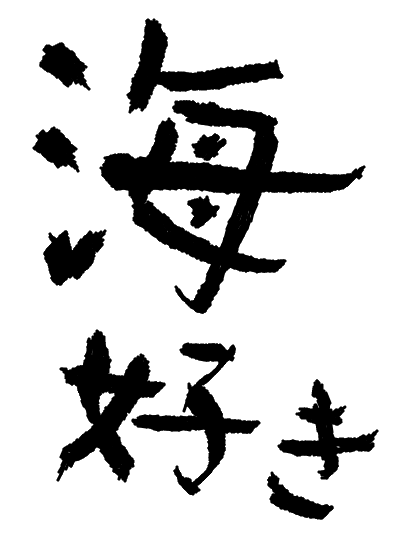 海
好き